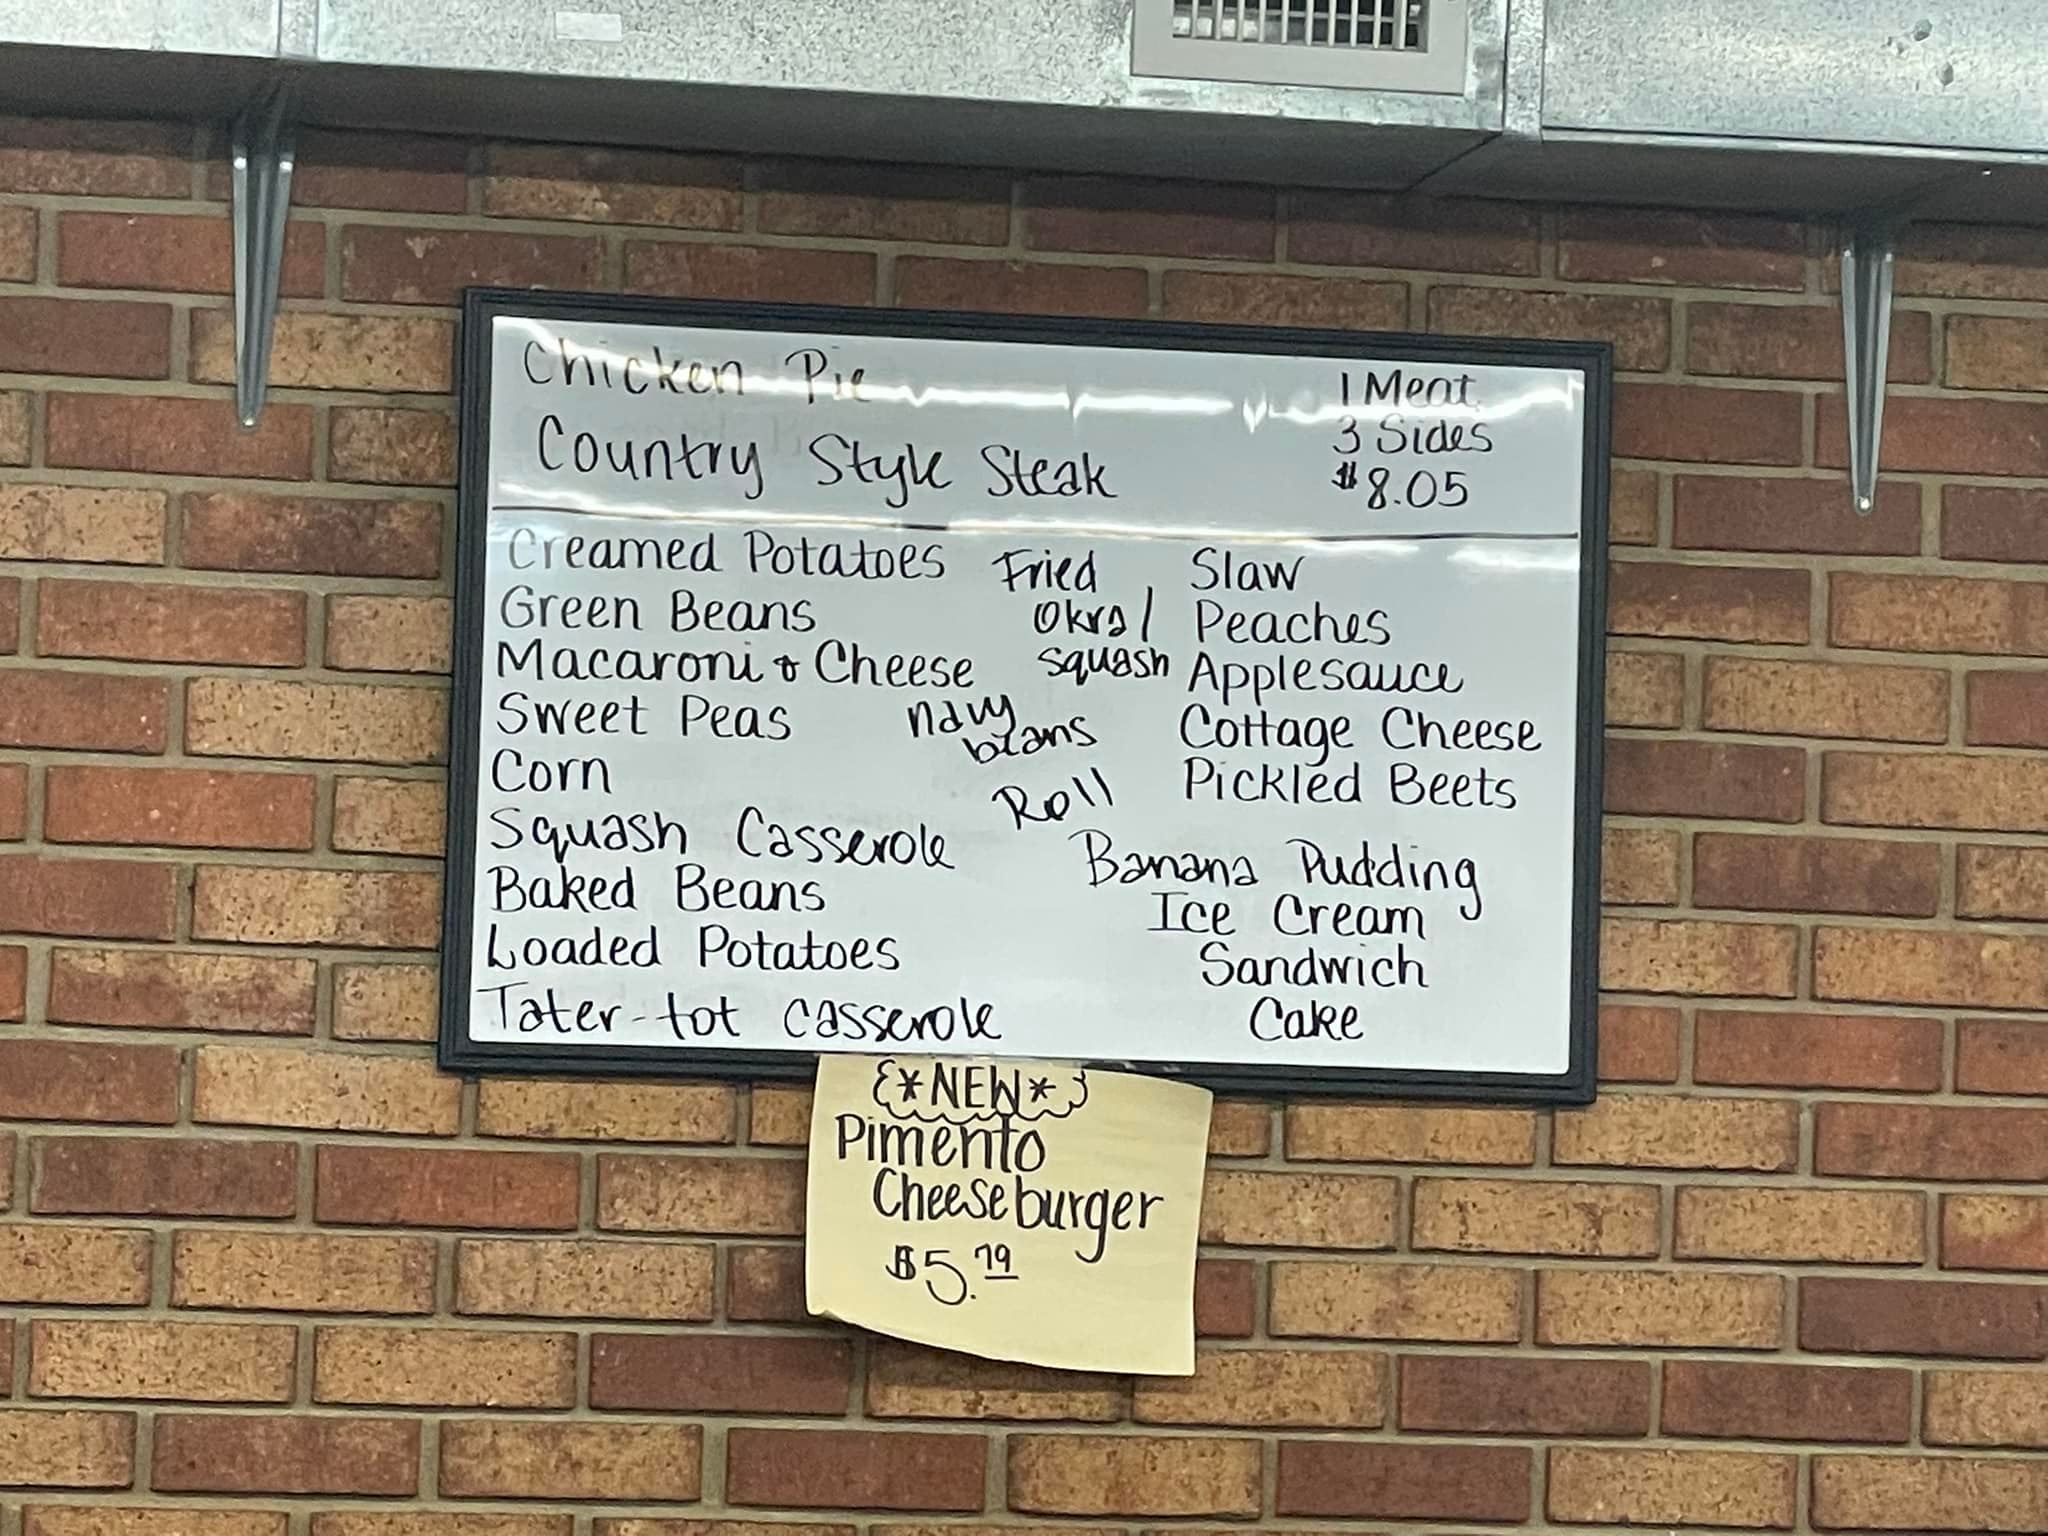 Chicken Pie
Country Style Steak
1 Meat
3 Sides
$8.05
Creamed Potatoes
Green Beans
Macaroni & Cheese
Sweet Peas
Corn
Squash Casserole
Baked Beans
Loaded Potatoes
Tater-tot casserole
Fried
Okra/
squash
navy
beans
Roll
Slaw
Peaches
Applesauce
Cottage Cheese
Pickled Beets
Banana Pudding
Ice Cream
Sandwich
Cake
*NEW*
Pimento
Cheeseburger
$5.79